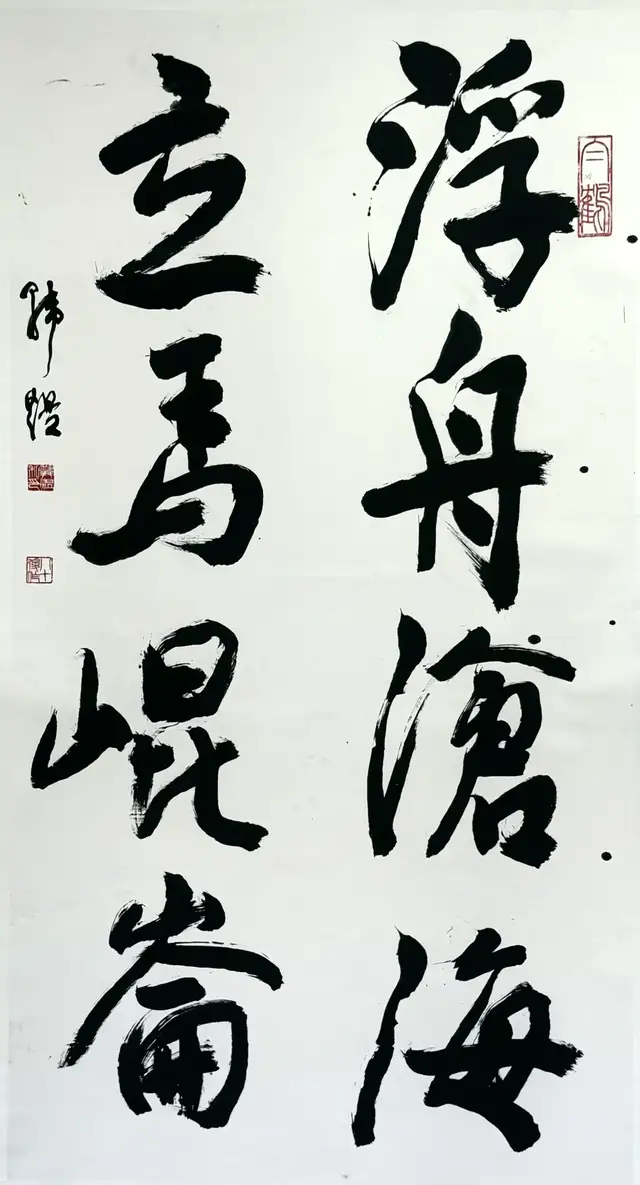 浮舟滄海
立馬崐崙